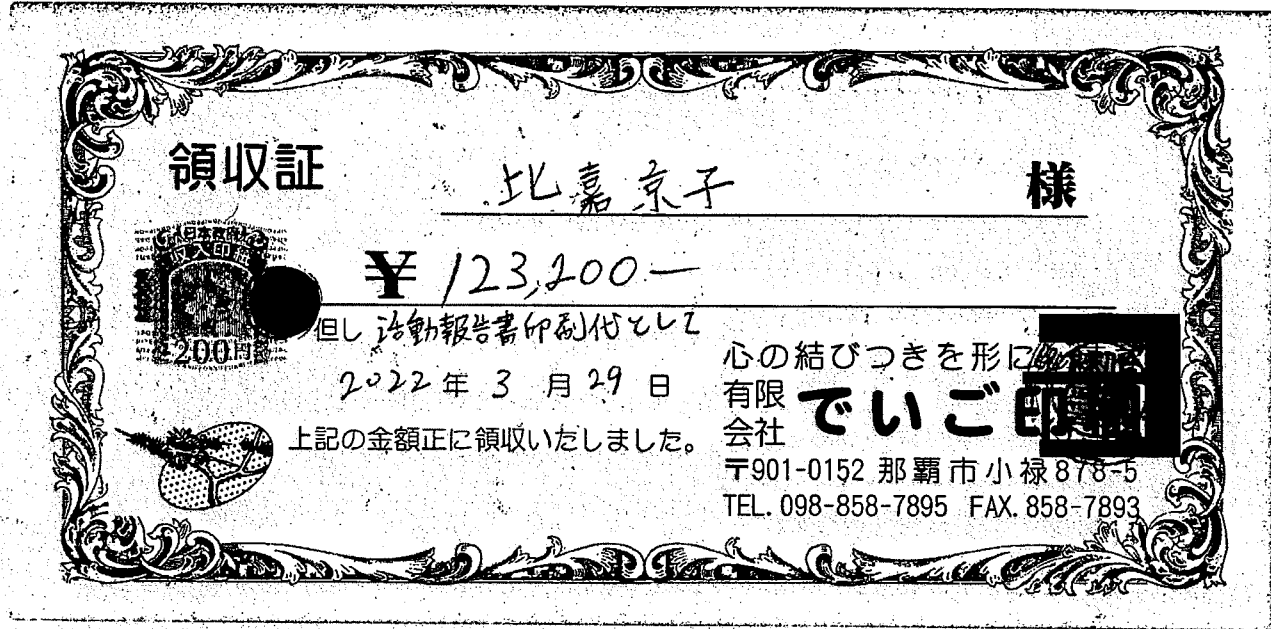 領収証
比嘉京子 様
日本政府
収入印紙
200円
¥ 123,200-
但し 活動報告書印刷代として
2022年 3月 29日
上記の金額正に領収いたしました。
心の結びつきを形に
有限会社 でいご印刷
〒901-0152 那覇市小禄878-5
TEL. 098-858-7895 FAX. 858-7893